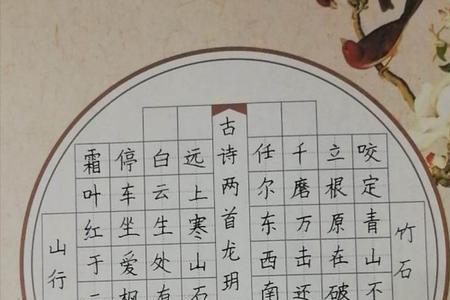 竹石
咬定青山不
立根原在破
千磨万击还
任尔东西南
古诗两首龙玥
远上寒山石
白云生处有
停车坐爱枫
霜叶红于二
山行